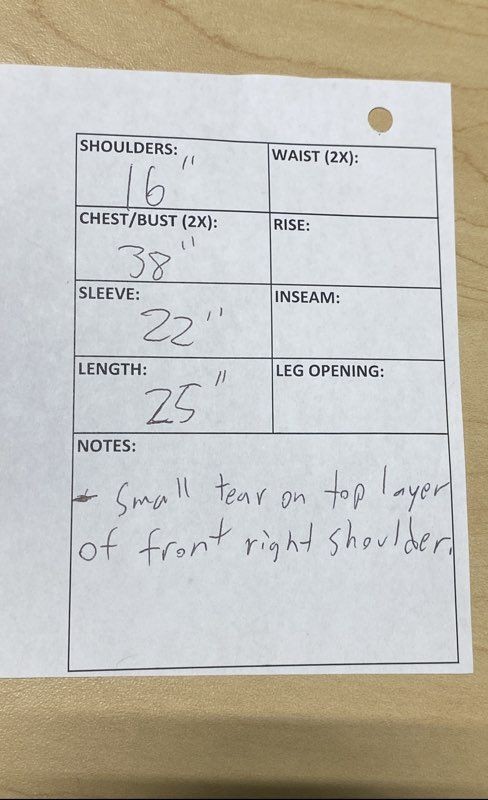 SHOULDERS:
16"
WAIST (2X):
CHEST/BUST (2X):
38"
RISE:
SLEEVE:
22"
INSEAM:
LENGTH:
25"
LEG OPENING:
NOTES:
- Small tear on top layer
of front right shoulder.